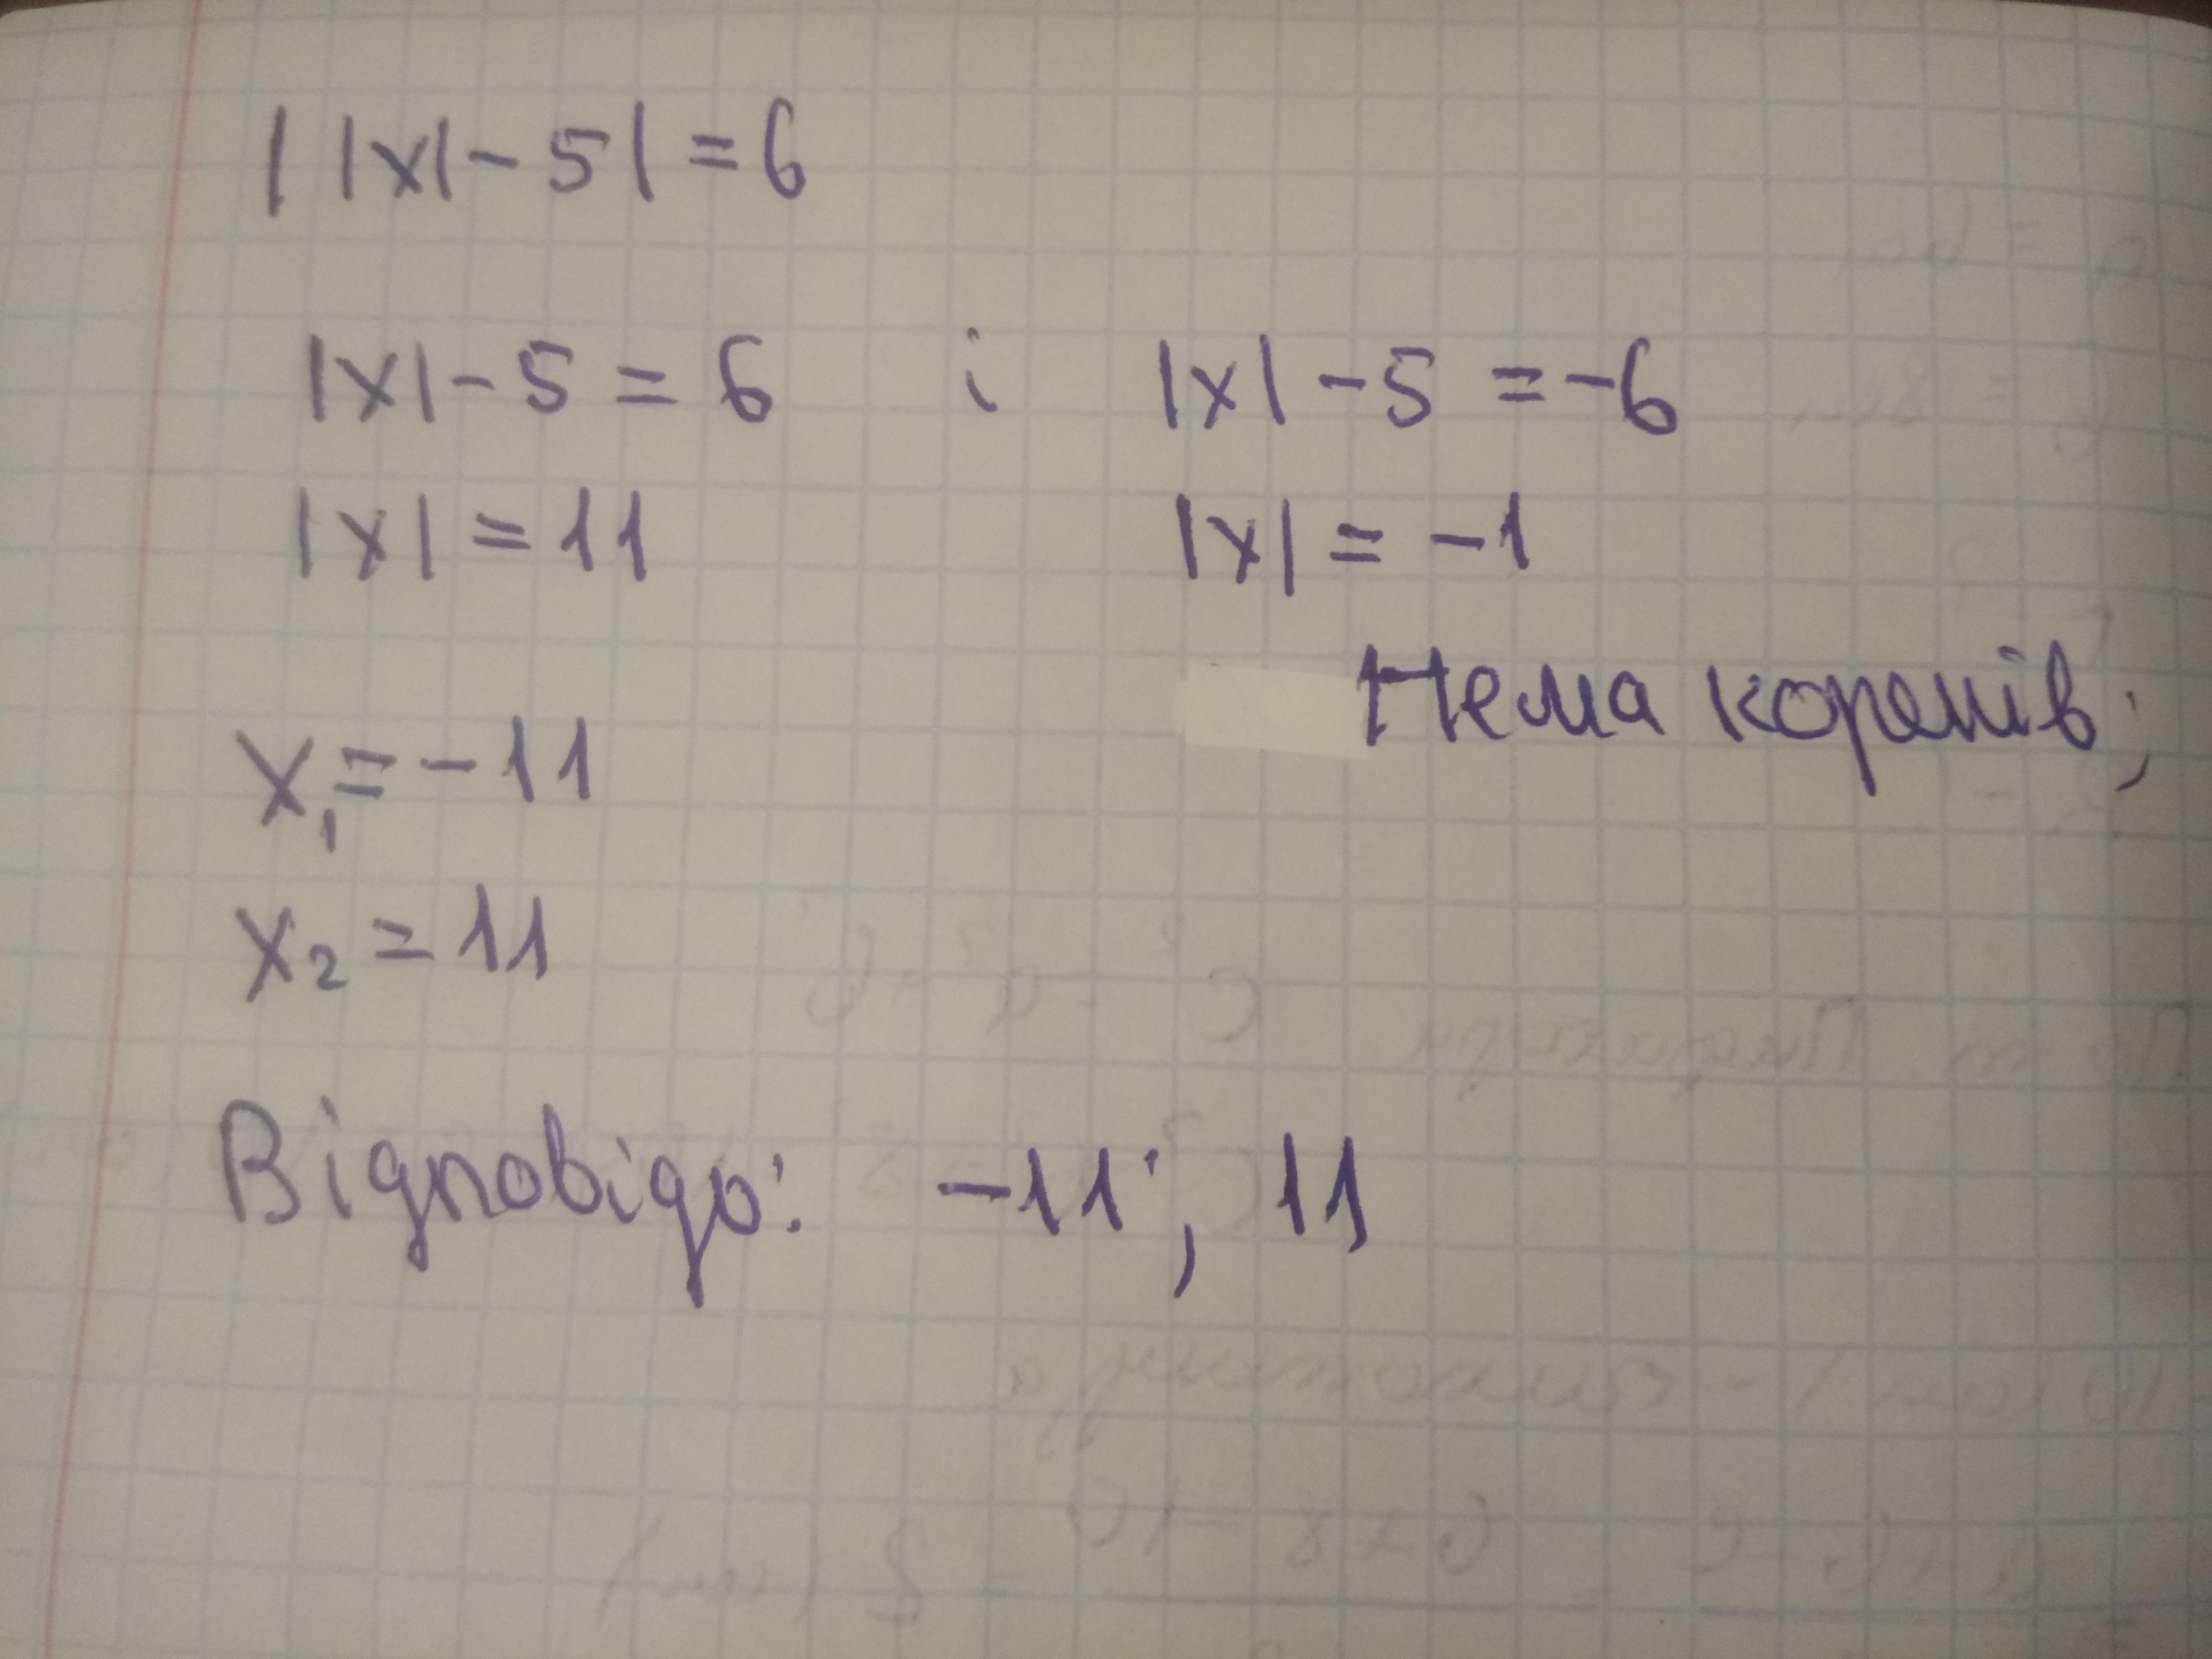 ||x|-5|=6
|x|-5=6 і |x|-5=-6
|x|=11 |x|=-1
Нема коренів;
x₁=-11
x₂=11
Відповідь: -11; 11